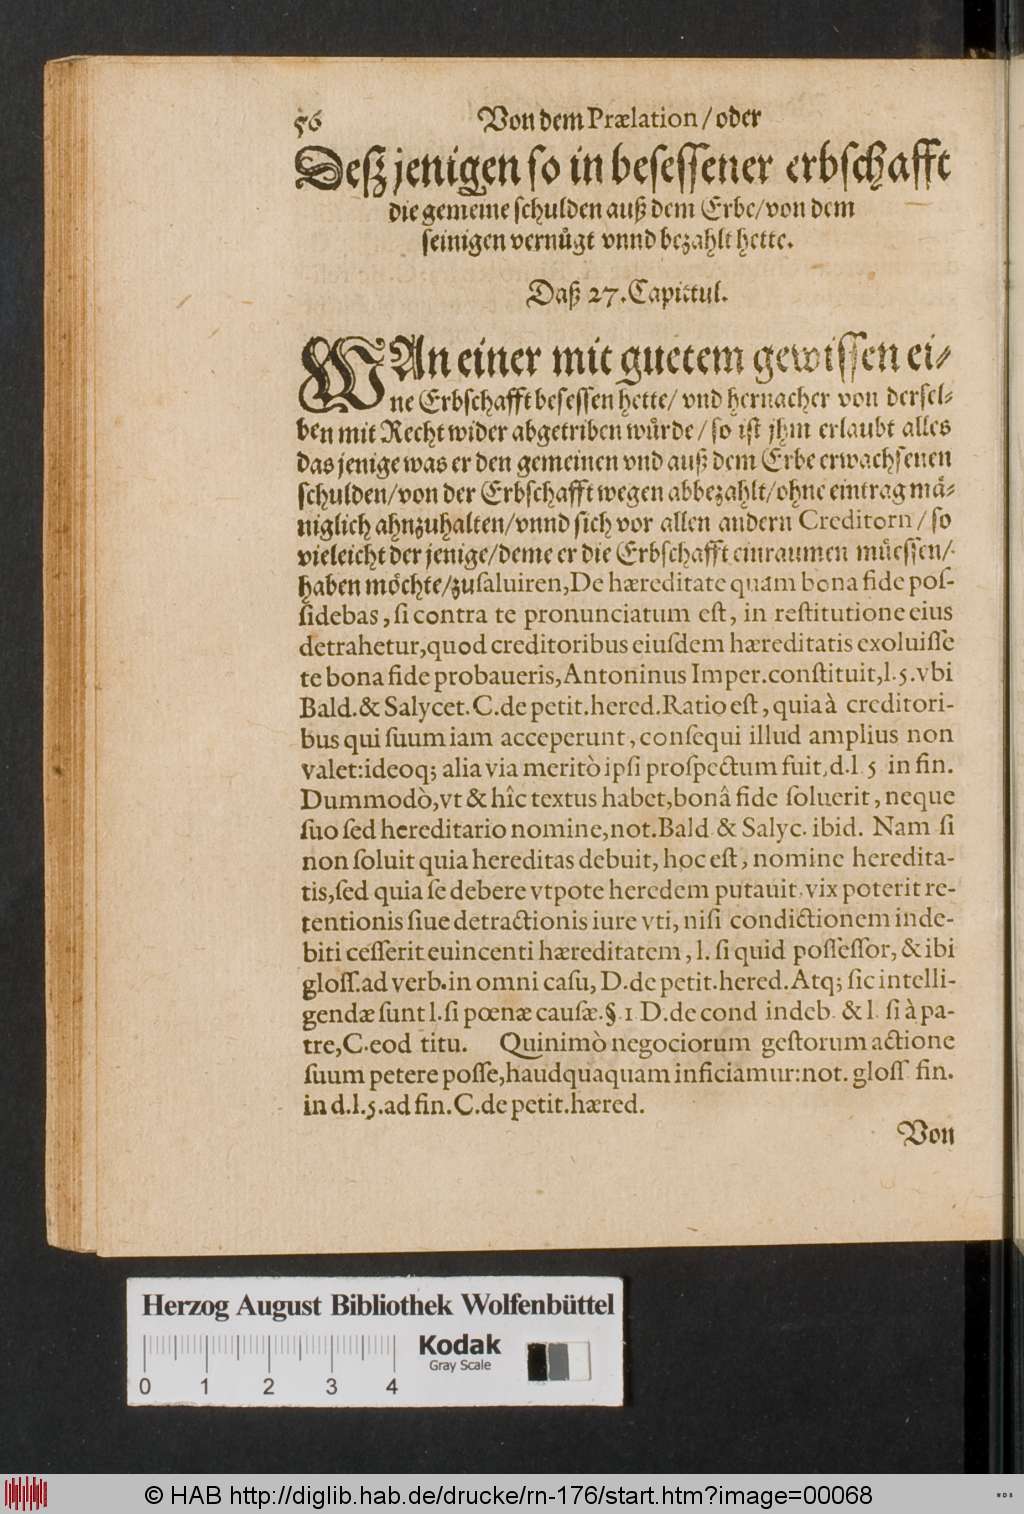 56 Von dem Prælation / oder
Deß jenigen so in besessener erbschafft
die gemeine schulden auß dem Erbe/von dem
seinigen vernu̍gt vnnd bezahlt hette.
Daß 27. Capittul.
WAn einer mit guetem gewissen ei-
ne Erbschafft besessen hette/ vnd hernacher von dersel-
ben mit Recht wider abgetriben wůrde/ so ist jhm erlaubt alles
das jenige was er den gemeinen vnd auß dem Erbe erwachsenen
schulden/von der Erbschafft wegen abbezahlt/ohne eintrag mä-
niglich ahnzuhalten/vnnd sich vor allen andern Creditorn / so
vieleicht der jenige/deme er die Erbschafft einraumen müessen/
haben möchte/zu saluiren, De hæreditate quam bona fide pos-
sidebas, si contra te pronunciatum est, in restitutione eius
detrahetur, quod creditoribus eiusdem hæreditatis exoluisse
te bona fide probaueris, Antoninus Imper. constituit, l. 5. vbi
Bald. & Salycet. C. de petit. hered. Ratio est, quia à creditori-
bus qui suum iam acceperunt, consequi illud amplius non
valet: ideoq; alia via meritò ipsi prospectum fuit, d. l 5 in fin.
Dummodò, vt & hîc textus habet, bonâ fide soluerit, neque
suo sed hereditario nomine, not. Bald & Salyc. ibid. Nam si
non soluit quia hereditas debuit, hoc est, nomine heredita-
tis, sed quia se debere vtpote heredem putauit, vix poterit re-
tentionis siue detractionis iure vti, nisi condictionem inde-
biti cesserit euincenti hæreditatem, l. si quid possessor, & ibi
gloss. ad verb. in omni casu, D. de petit. hered. Atq; sic intelli-
gendæ sunt l. si pœnæ causæ. §. 1 D. de cond indeb. & l. si à pa-
tre, C. eod titu. Quinimò negociorum gestorum actione
suum petere posse, haudquaquam inficiamur: not. gloss fin.
in d. l. 5. ad fin. C. de petit. hæred.
Von
Herzog August Bibliothek Wolfenbüttel
Kodak
Gray Scale
0 1 2 3 4
© HAB http://diglib.hab.de/drucke/rn-176/start.htm?image=00068